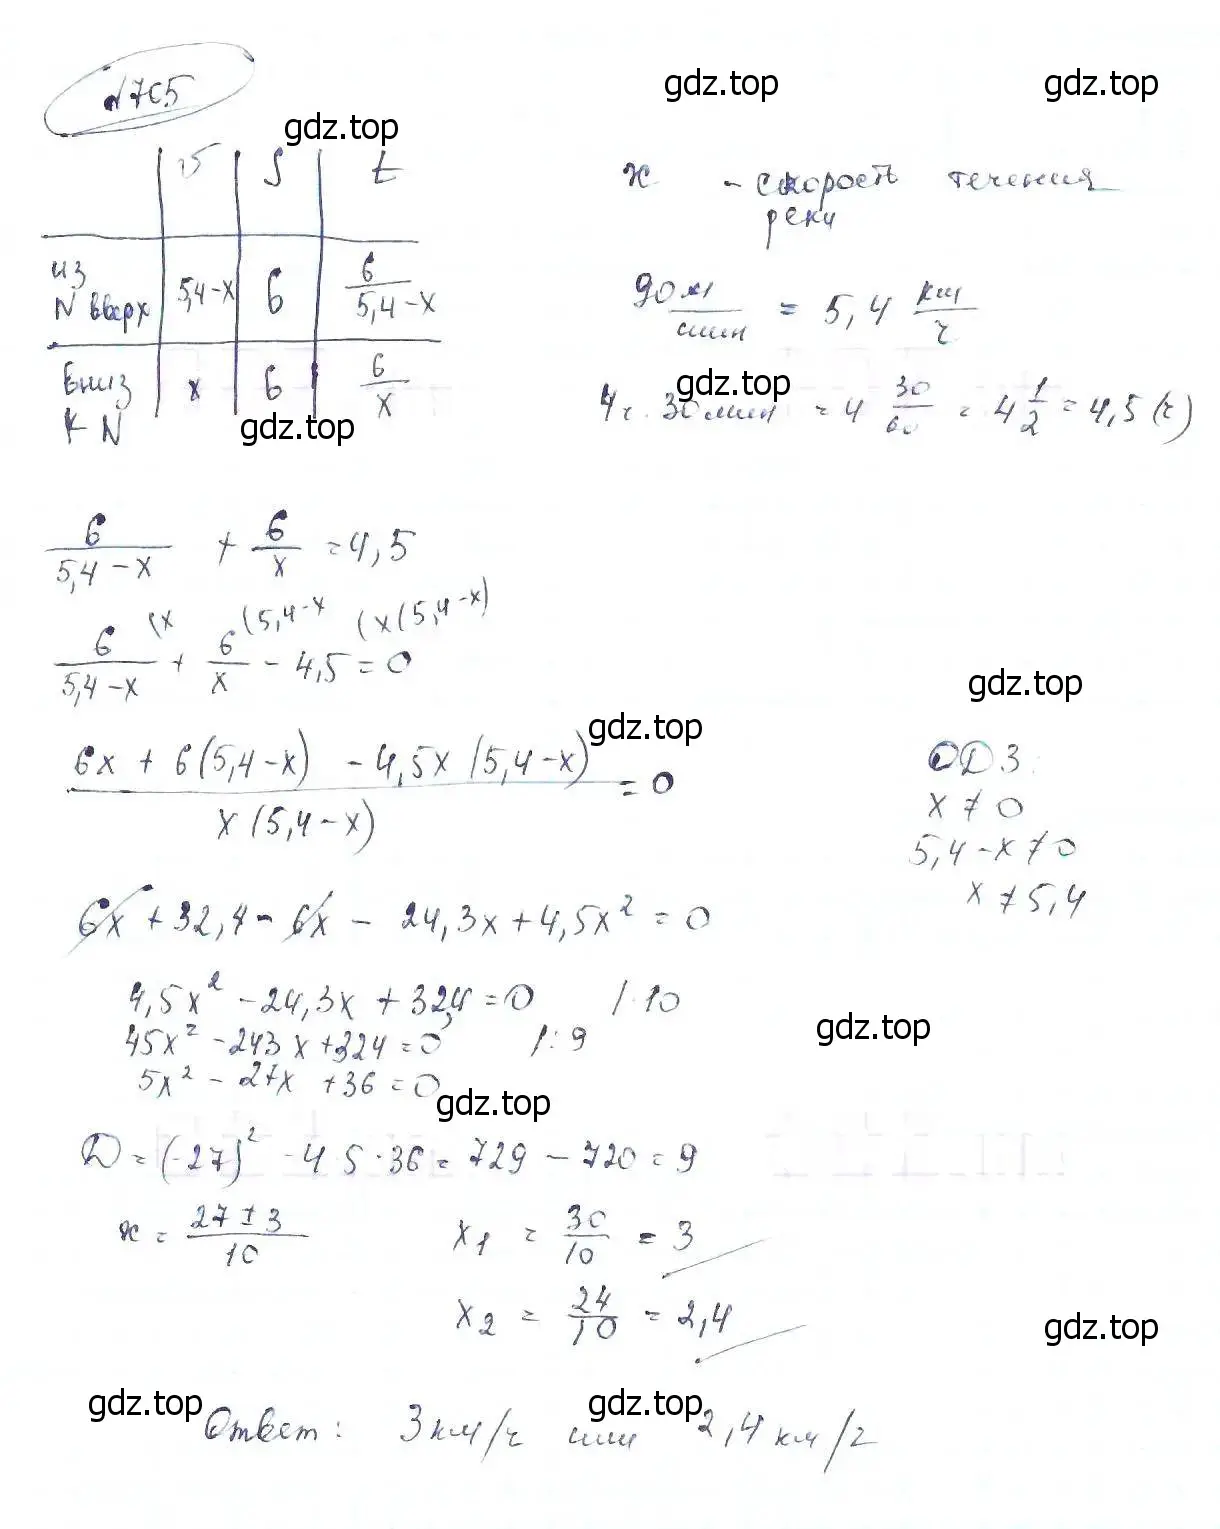 №765
gdz.top gdz.top
gdz.top
v S t
x - скорость течения
реки
из
N вверх 5,4-x 6 6/(5,4-x)
90 м/мин = 5,4 км/ч
вниз
к N x 6 6/x
gdz.top
gdz.top
4ч. 30мин = 4 30/60 = 4 1/2 = 4,5 (ч)
6/(5,4-x) + 6/x = 4,5
(x (5,4-x (x(5,4-x)
6/(5,4-x) + 6/x - 4,5 = 0
gdz.top
gdz.top
(6x + 6(5,4-x) - 4,5x(5,4-x))/(x(5,4-x)) = 0
ОДЗ:
x ≠ 0
5,4-x ≠ 0
x ≠ 5,4
6x + 32,4 - 6x - 24,3x + 4,5x² = 0
4,5x² - 24,3x + 32,4 = 0 |·10
gdz.top
45x² - 243x + 324 = 0 |:9
5x² - 27x + 36 = 0
gdz.top
D = (-27)² - 4·5·36 = 729 - 720 = 9
x = (27±3)/10 x₁ = 30/10 = 3
x₂ = 24/10 = 2,4
gdz.top
gdz.top gdz.top
Ответ: 3 км/ч или 2,4 км/ч